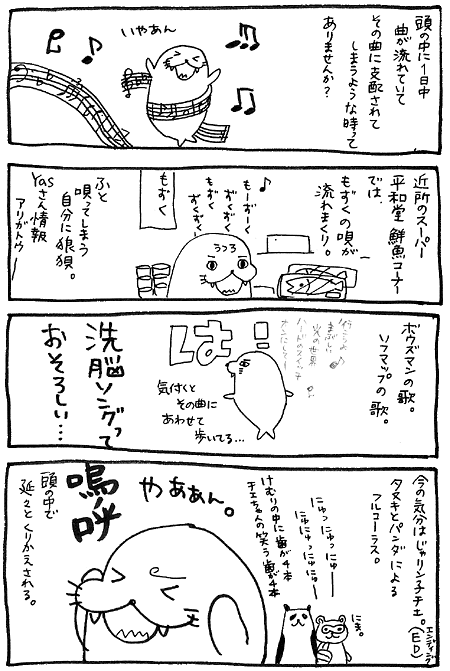 頭の中に1日中
曲が流れていて
その曲に支配されて
しまうような時って
ありませんか?
いやあん
近所のスーパー
平和堂 鮮魚コーナー
では
もずくの唄が
流れまくり。
もーずーく
ずくずく
もずく
もずく
ずくずく
うつろ
もずく
ふと
唄ってしまう
自分に狼狽。
Yasさん情報
アリガトウ
ボウズマンの歌。
ソフマップの歌。
は!
気付くと
その曲に
あわせて
歩いてる…
洗脳ソングって
おそろしい…
今の気分はじゃリン子チエ。
エンディング
(ED)
タヌキとパンダによる
フルコーラス。
にま。
にゅっにゅっにゅー
にゅにゅっにゅにゅー
けむりの中に歯が4本
チエちゃんの笑う歯が4本
やああん。
嗚呼
頭の中で
延々とくりかえされる。